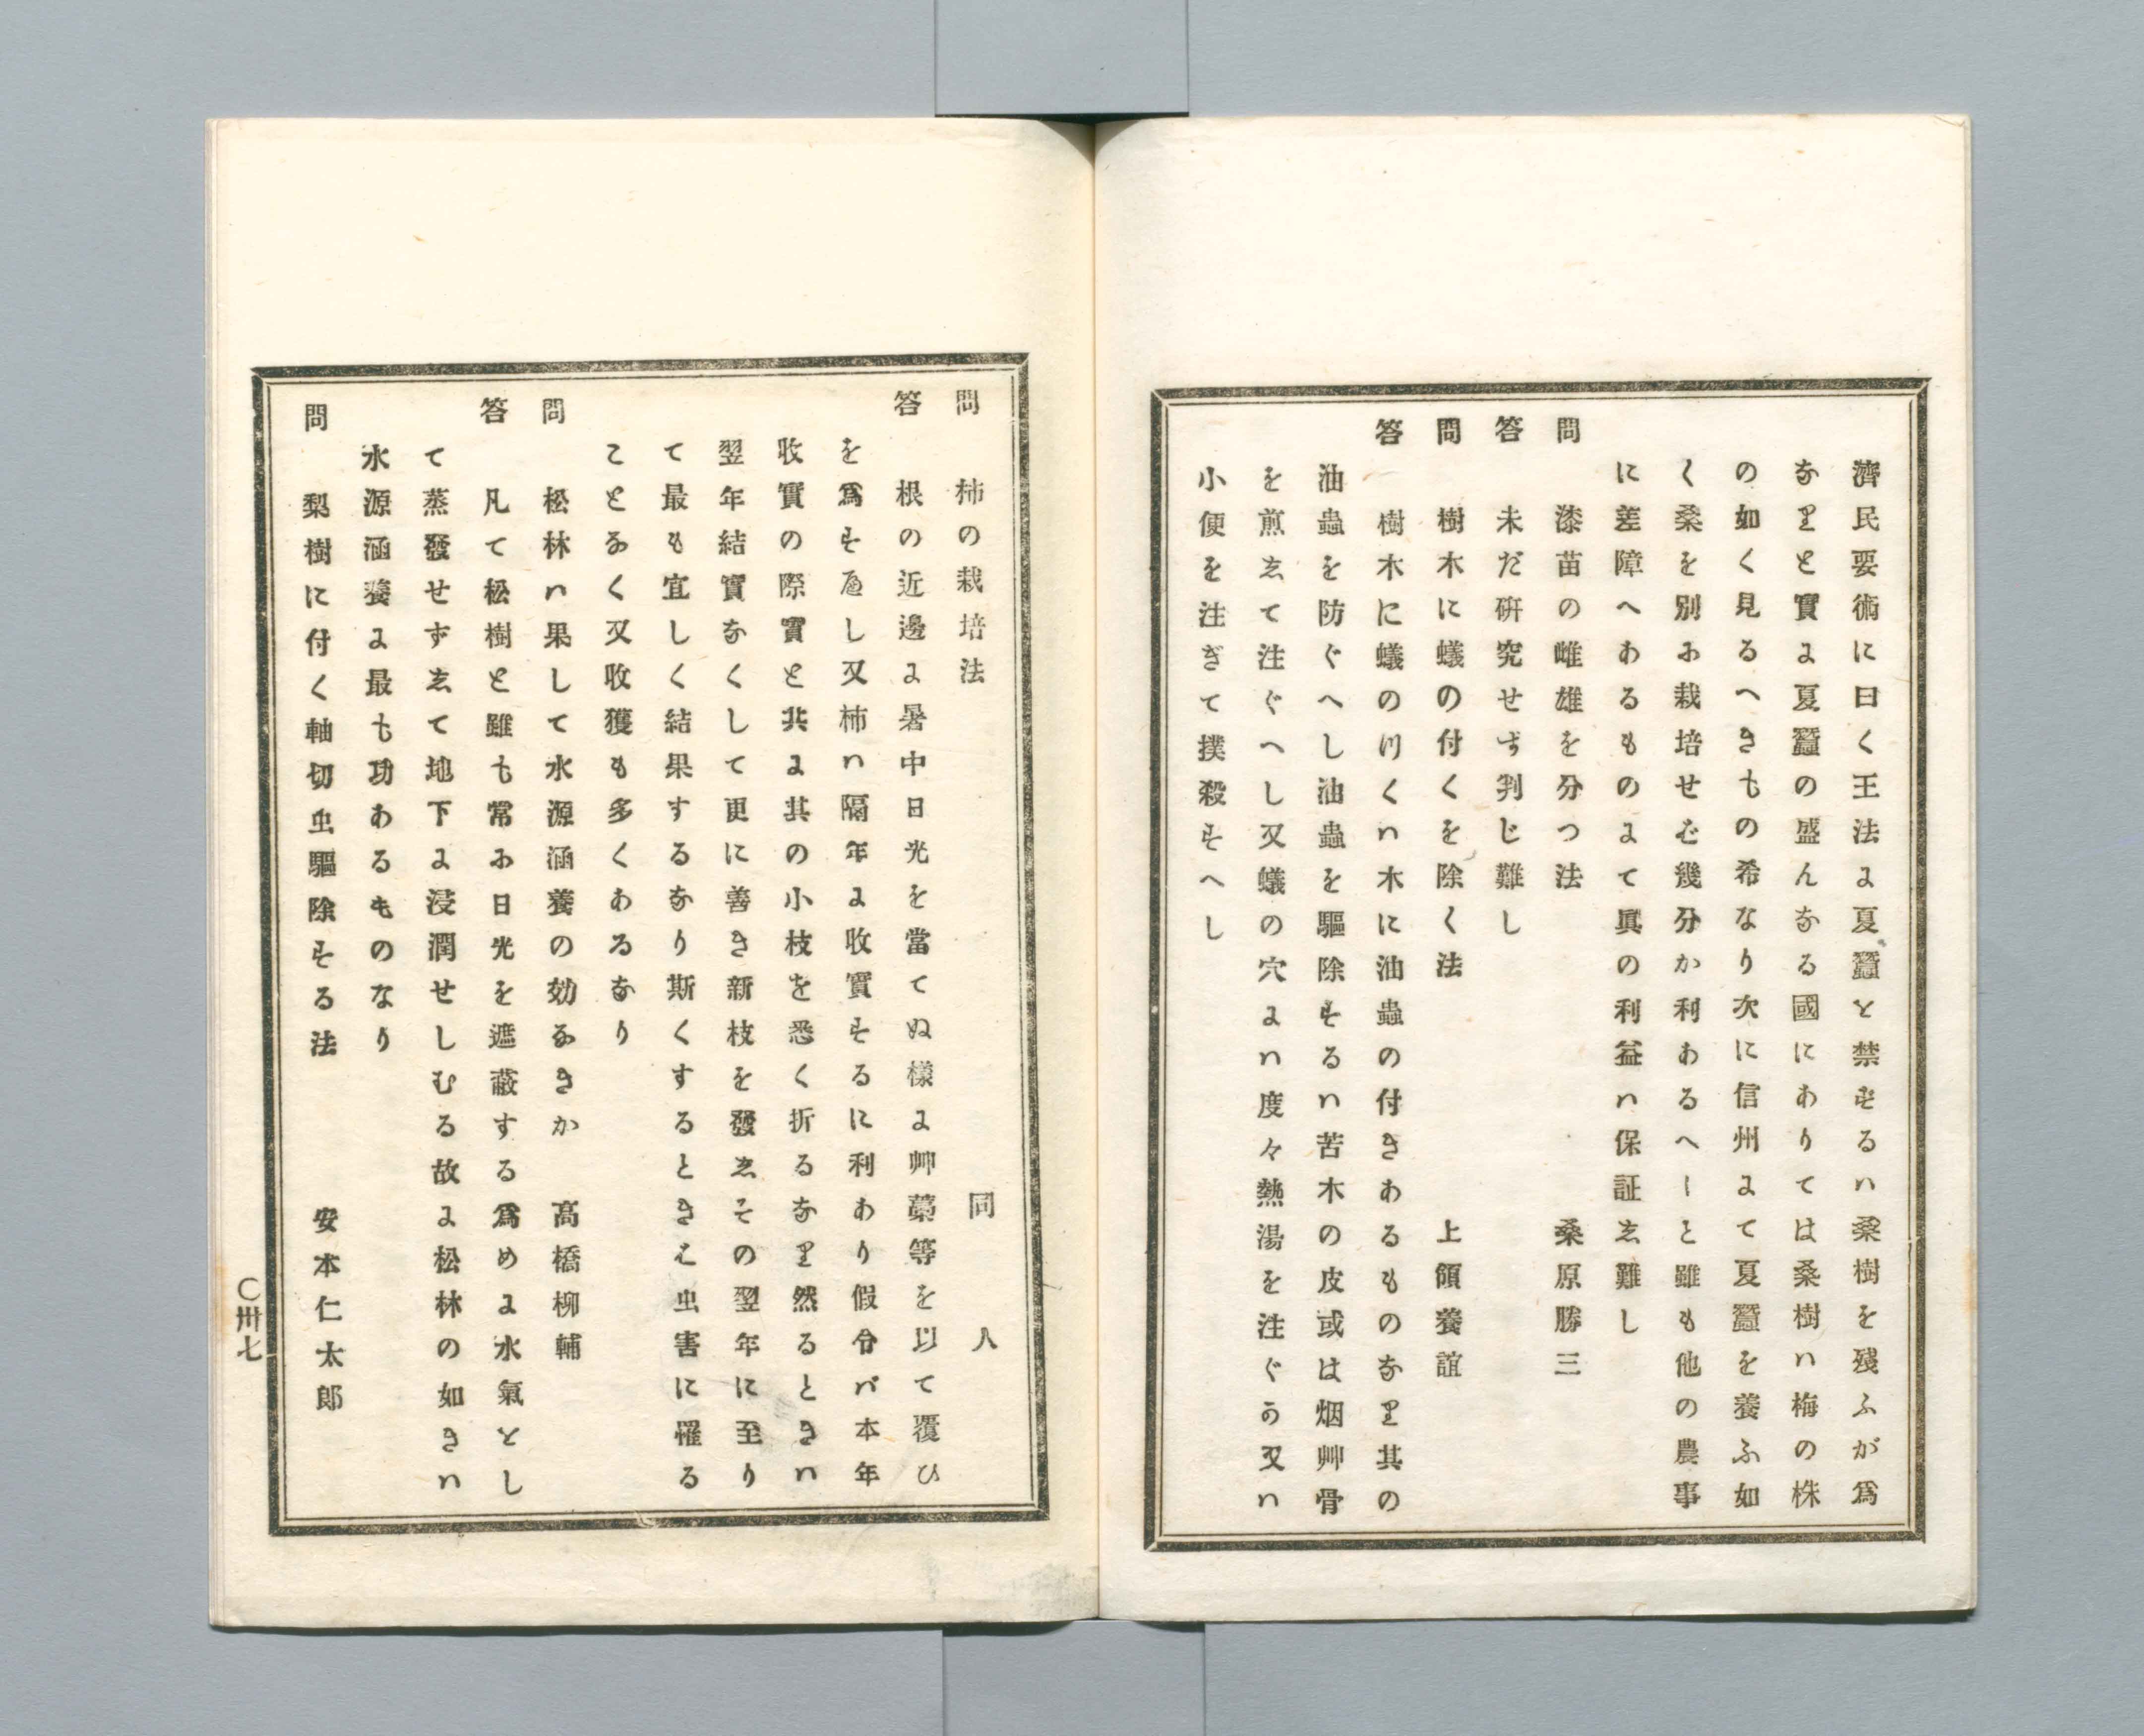 濟民要術に曰く王法よ夏蠶と禁ずるハ桑樹を殘ふが爲
なりと實よ夏蠶の盛んなる國にありては桑樹ハ梅の株
の如く見るへきもの希なり次に信州よて夏蠶を養ふ如
く桑を別お栽培せば幾分か利あるへしと雖も他の農事
に差障へあるものよて眞の利益ハ保証し難し
問　漆苗の雌雄を分つ法　桑原勝三
答　未だ硏究せず判じ難し
問　樹木に蟻の付くを除く法　上領養誼
答　樹木に蟻の付くハ木に油蟲の付きあるものなり其の
油蟲を防ぐへし油蟲を驅除するハ苦木の皮或は烟艸骨
を煎して注ぐへし又蟻の穴よハ度々熱湯を注ぐか又ハ
小便を注ぎて撲殺すへし
問　柿の栽培法　同人
答　根の近邊よ暑中日光を當てぬ樣よ艸藁等を以て覆ひ
を爲すべし又柿ハ隔年よ收實するに利あり假令バ本年
收實の際實と共よ其の小枝を悉く折るなり然るときハ
翌年結實なくして更に善き新枝を發しその翌年に至り
て最も宜しく結果するなり斯くするときハ虫害に罹る
ことなく又收獲も多くあるなり
問　松林ハ果して水源涵養の効なきか　高橋柳輔
答　凡て松樹と雖も常お日光を遮蔽する爲めよ水氣とし
て蒸發せずして地下よ浸潤せしむる故よ松林の如きハ
水源涵養よ最も功あるものなり
問　梨樹に付く軸切虫驅除する法　安本仁太郎
〇卅七